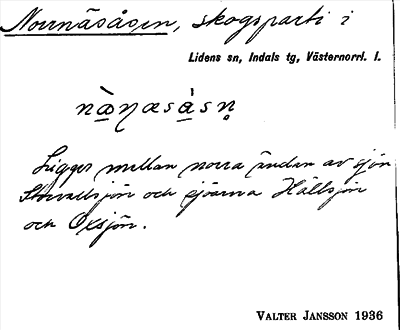 Norrnäsåsen, skogsparti i
Lidens sn, Indals tg, Västernorrl. l.
Ligger mellan norra ändan av sjön
Storvallsjön och sjöarna Hällsjön
och Oxsjön.
VALTER JANSSON 1936